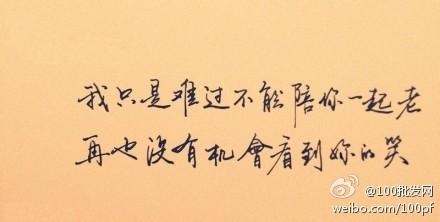 我只是难过不能陪你一起老
再也没有机會看到妳的笑
@100批发网
weibo.com/100pf